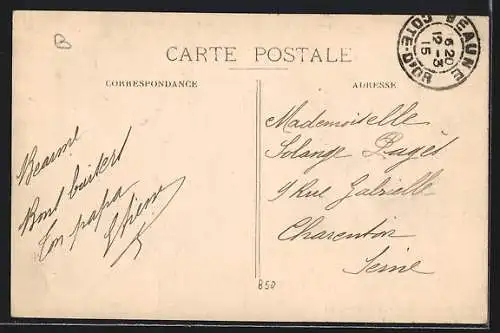 B
CARTE POSTALE
CORRESPONDANCE
ADRESSE
BEAUNE
6 20
12 - 3
15
COTE-D'OR
Beaune
Bons baisers
Ton papa
Mademoiselle
Solange Pagès
9 Rue Gabrielle
Charenton
Seine
850